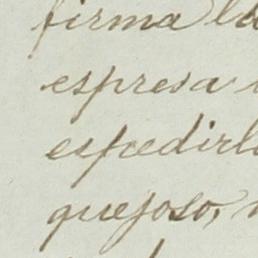 firma la
espresa
espedirl
quejoso,